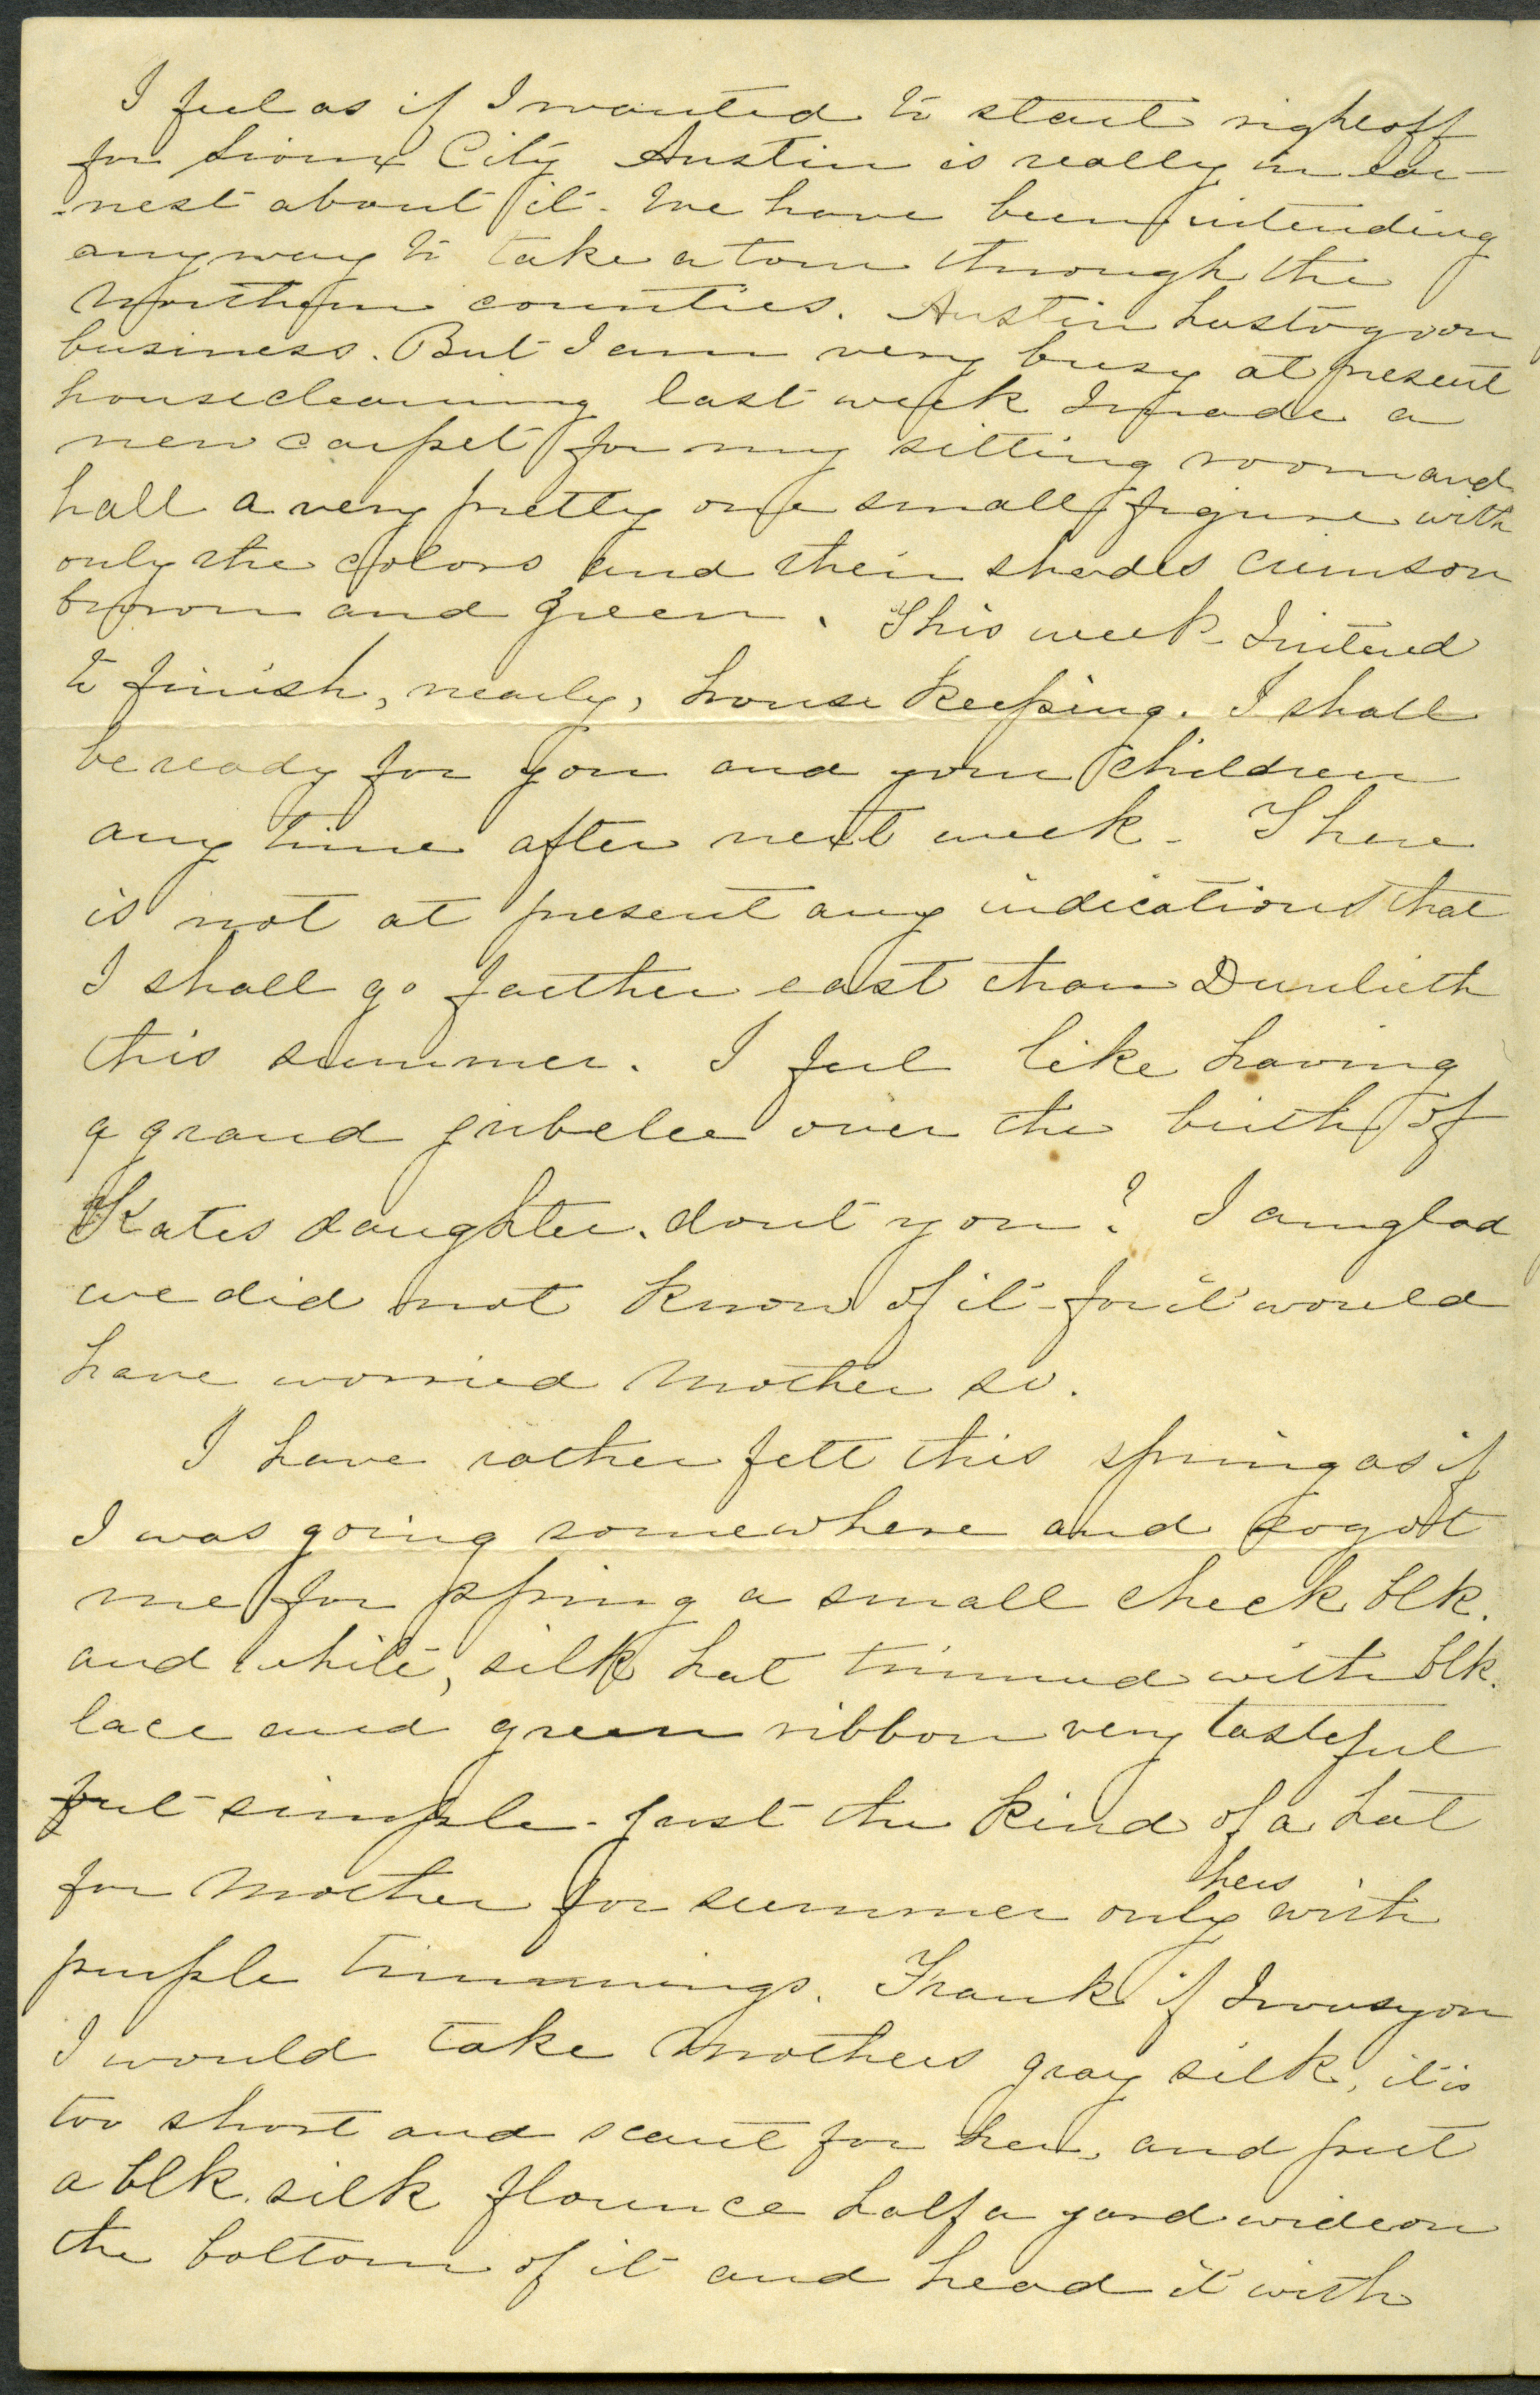 I feel as if I wanted to start right off
for Sioux City Austin is really in ear-
-nest about it. We have been intending
anyway to take a tour through the
Northern counties. Austin has to go on
business. But I am very busy at present
housecleaning last week I made a
new carpet for my sitting room and
hall a very pretty one small figure with
only the colors and their shades crimson
brown and green. This week I intend
to finish, nearly, house keeping. I shall
be ready for you and your children
any time after next week - There
is not at present any indications that
I shall go farther east than Dunlieth
this summer. I feel like having
a grand jubelee over the birth of
Kates daughter. dont you? I am glad
we did not know of it - for it would
have worried Mother so.
I have rather felt this spring as if
I was going somewhere and so got
me for spring a small check blk.
and white, silk hat trimmed with blk.
lace and green ribbon very tasteful
but simple - just the kind of a hat
for Mother for summer only hers with
purple trimmings. Frank if I was you
I would take Mothers gray silk, it is
too short and scant for her, and put
a blk. silk flounce half a yard wide on
the bottom of it and head it with